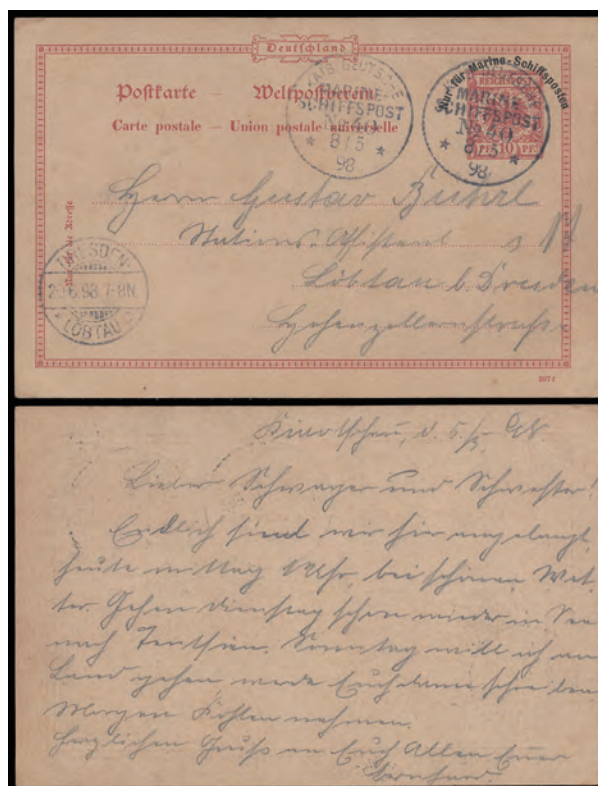 Deutschland
Postkarte — Weltpostverein
Carte postale — Union postale universelle
Nur für die Adresse
KAIS. DEUTSCHE
MARINE-
SCHIFFSPOST
No 40
8/5
98
Nur für Marine-Schiffsposten
REICHSPOST
MARINE-
SCHIFFSPOST
No 40
8/5
98
PF 10 PF
Herrn Gustav
Stations-Assistent
Löbtau b. Dresden
Hohenzollernstraße
DRESDEN-
6.98. 7-8N.
LÖBTAU
Kiautschau, d. 5/5 98
Lieber Schwager und Schwester!
Endlich sind wir hier angelangt
heute mittag Uhr, bei schönen Wet-
ter. Gehen Dienstag schon wieder in See
nach Sonntag will ich an
Land gehen werde Euch dann schreiben
Morgen Kohlen nehmen.
Herzlichen Gruß an Euch Allen Euer